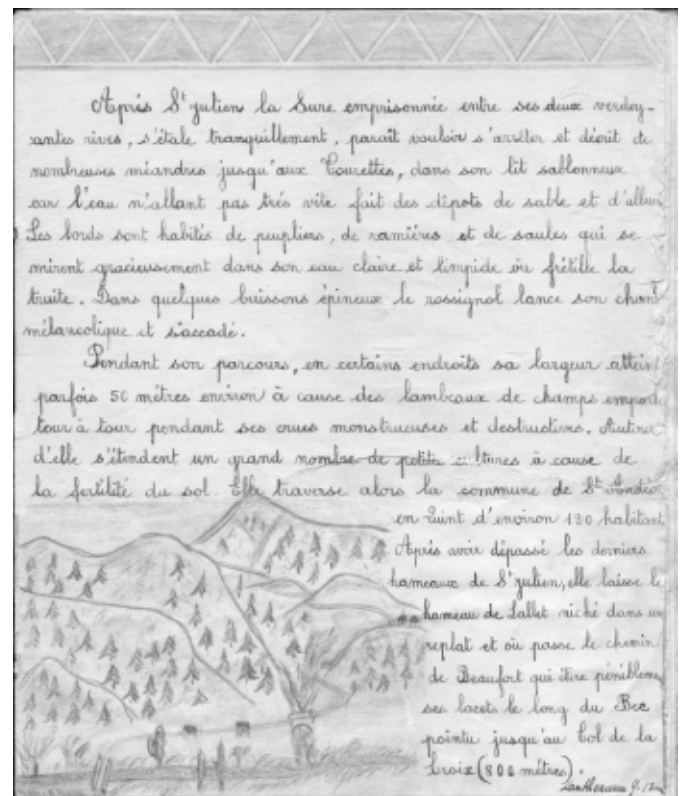 Après St Julien la Sure emprisonnée entre ses deux verdoy-
antes rives, s'étale tranquillement, paraît vouloir s'arrêter et décrit de
nombreuses méandres jusqu'aux Tourettes, dans son lit sablonneux
car l'eau n'allant pas très vite fait des dépots de sable et d'alluvi
Les bords sont habités de peupliers, de ramières et de saules qui se
mirent gracieusement dans son eau claire et limpide où frétille la
truite. Dans quelques buissons épineux le rossignol lance son chant
mélancolique et saccadé.
Pendant son parcours, en certains endroits sa largeur attein
parfois 50 mètres environ à cause des lambeaux de champs empor
tour à tour pendant ses crues monstrueuses et destructives. Autour
d'elle s'étendent un grand nombre de petites cultures à cause de
la fertilité du sol. Elle traverse alors la commune de St Andéo
en Quint d'environ 130 habitant
Après avoir dépassé les derniers
hameaux de St Julien, elle laisse le
hameau de Lallet niché dans un
replat et où passe le chemin
de Beaufort qui étire péniblem
ses lacets le long du Bec
pointu jusqu'au Col de la
Croix (800 mètres).